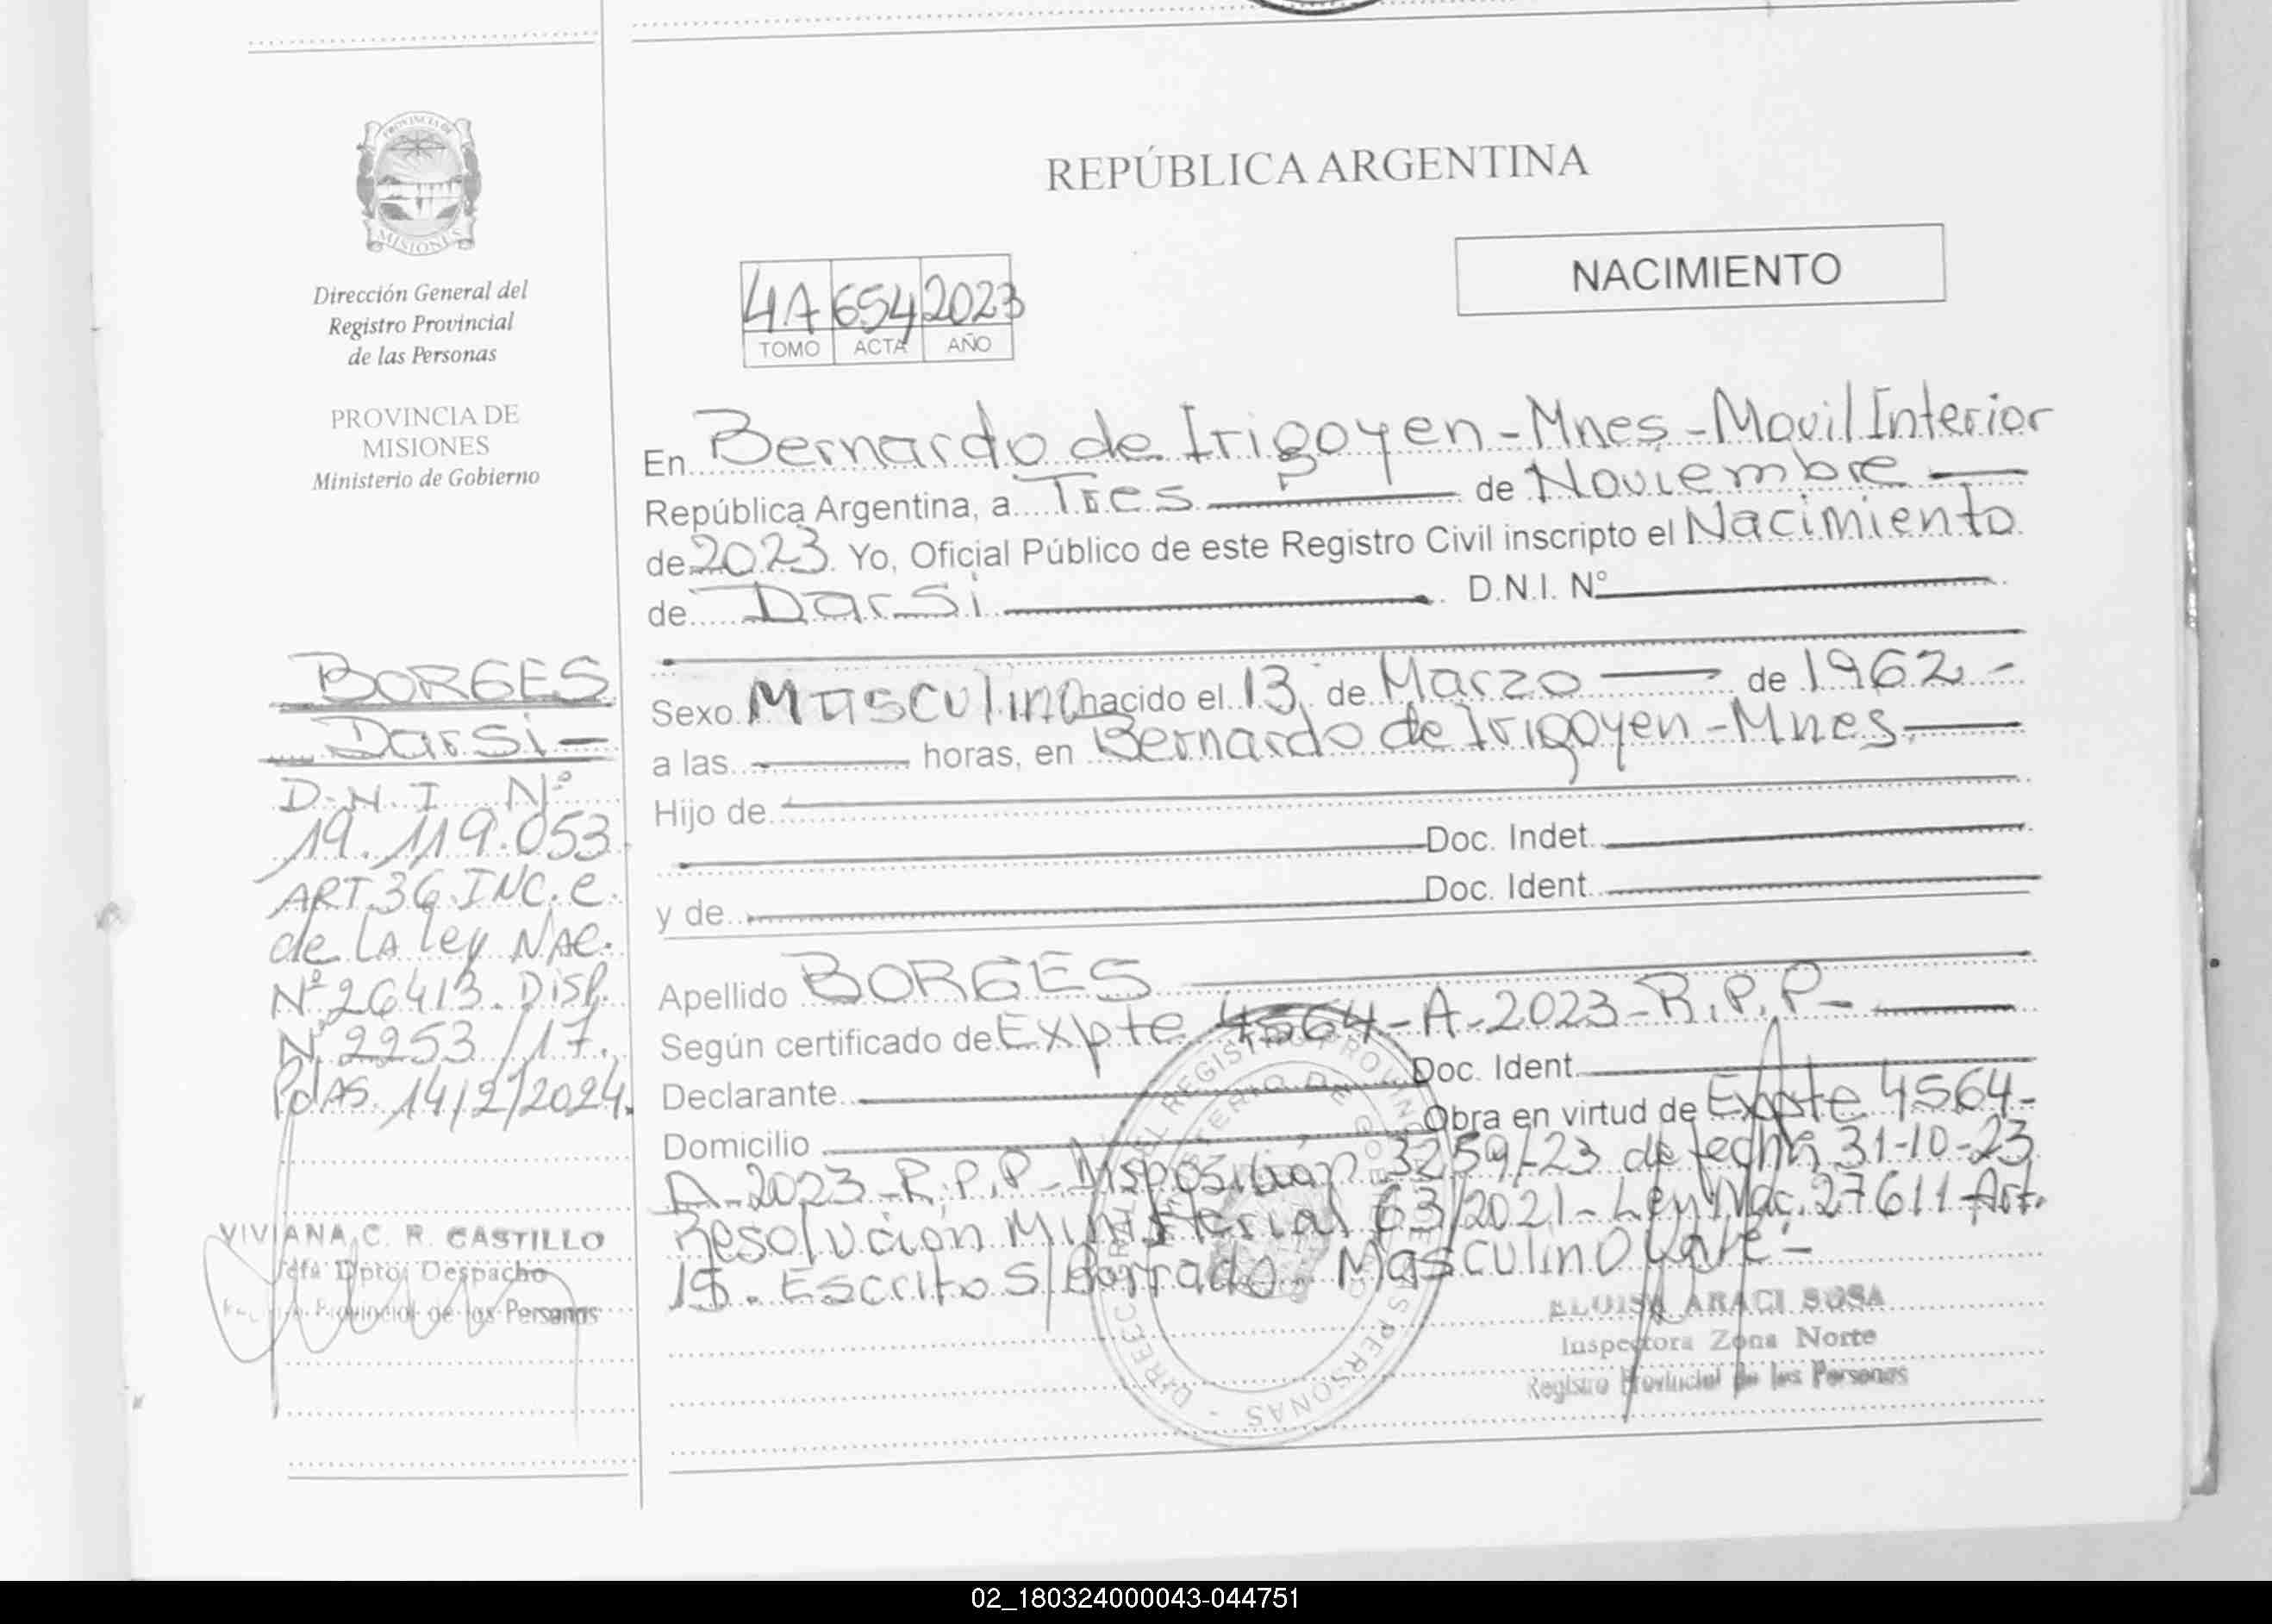 PROVINCIA DE
MISIONES
Dirección General del
Registro Provincial
de las Personas
PROVINCIA DE
MISIONES
Ministerio de Gobierno
BORGES
Darsi -
D.N.I Nº
19.119.053
ART.36.INC.e.
de LA ley NAC.
Nº26413. DISP.
Nº 2253/17.
PdAS. 14/2/2024.
VIVIANA C. R. CASTILLO
Jefa Dpto. Despacho
Provincial de las Personas
REPÚBLICA ARGENTINA
NACIMIENTO
4A 654 2023
TOMO ACTA AÑO
En Bernardo de Irigoyen - Mnes - Movil Interior
República Argentina, a Tres de Noviembre
de 2023 Yo, Oficial Público de este Registro Civil inscripto el Nacimiento
de Darsi D.N.I. Nº
Sexo Masculino nacido el 13 de Marzo de 1962 -
a las horas, en Bernardo de Irigoyen - Mnes.
Hijo de
Doc. Indet.
y de Doc. Ident.
Apellido BORGES
Según certificado de Expte 4564-A-2023-R.P.P-
Declarante Doc. Ident.
Domicilio Obra en virtud de Expte 4564-
A-2023-R.P.P- Disposición 3259/23 de fecha 31-10-23
Resolución Ministerial 63/2021- Ley Nac. 27611 Art.
15. Escrito S/Borrado. Masculino Vale.-
ELOISA ARACI SOSA
Inspectora Zona Norte
Registro Provincial de las Personas
02_180324000043-044751